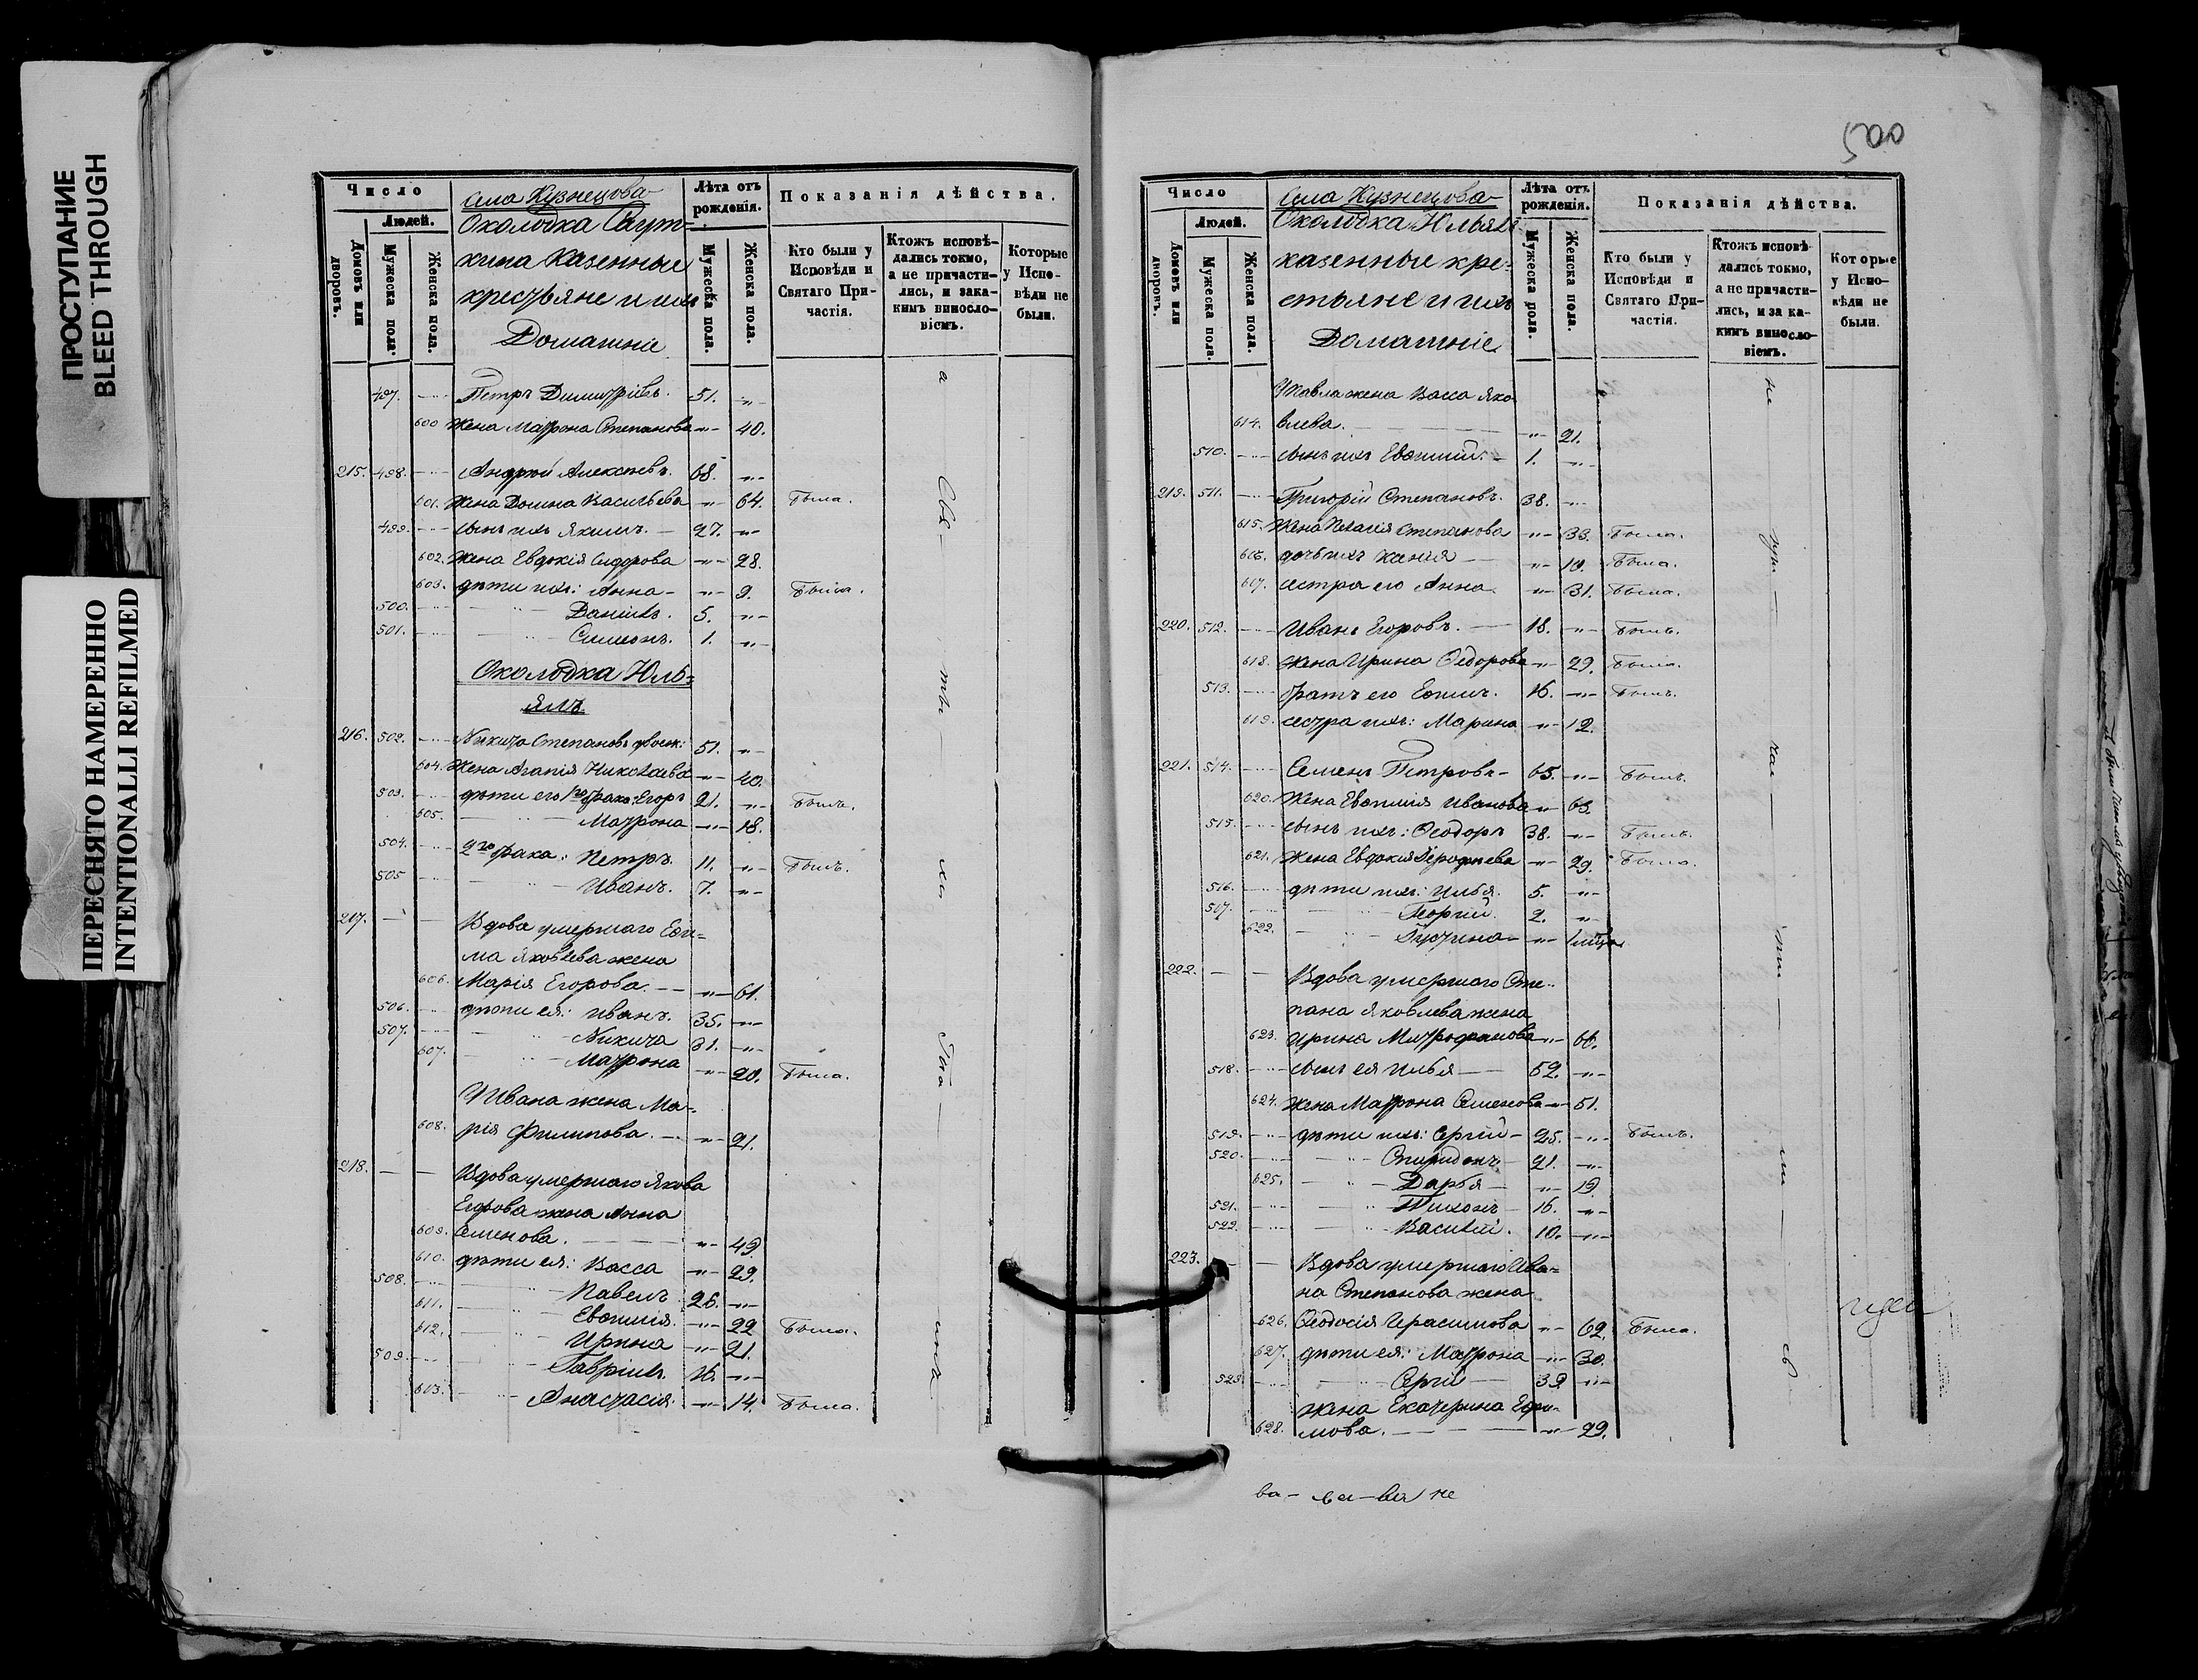 ПРОСТУПАНИЕ
BLEED THROUGH
ПЕРЕСНЯТО НАМЕРЕННО
INTENTIONALLI REFILMED
Число
Людей.
Домовъ или дворовъ.
Мужеска пола.
Женска пола.
села Кузнецова
Околодка
кина Казенные
крестьяне и ихъ
Домашніе
Лѣта отъ рожденія.
Мужеска пола.
Женска пола.
Показанія дѣйства.
Кто были у Исповѣди и Святаго При-
частія.
Ктожъ исповѣ-
дались токмо,
а не причасти-
лись, и зака-
кимъ виносло-
віемъ.
Которые
у Испо-
вѣди не
были.
497. Петръ Димитріевъ. 51. -"-
600 Жена Матрона Степанова -"- 40.
215. 498. Андрей Алексѣевъ. 68. -"-
601. Жена Домна Васильева -"- 64. Была.
499. сынъ ихъ Якимъ. 27. -"-
602. Жена Евдокія Сидорова -"- 28.
603. дѣти ихъ: Анна -"- 9. Была.
500. Даніилъ. 5. -"-
501. Симеонъ. 1. -"-
Околодка Юль-
ялъ
216. 502. Никита Степановъ 51. -"-
604. Жена Агапія Николаева -"- 40.
503. дѣти его 1го брака: Егоръ 21. -"- Былъ.
605. Матрона -"- 18.
504. 2го брака: Петръ. 11. -"- Былъ.
505 Иванъ. 7. -"-
217. Вдова умершаго Ефи-
ма Яковлева жена
606. Марія Егорова. -"- 61.
506. дѣти ея: Иванъ. 35. -"-
507. Никита 31. -"-
607. Матрона -"- 20. Была.
У Ивана жена Ма-
608. рія Филипова. -"- 21.
218. Вдова умершаго Якова
Егорова жена Анна
609. Семенова. -"- 49
610. дѣти ея: Васса -"- 29.
508. Павелъ 26. -"-
611. Евфимія. -"- 22 Была.
612. Ирина -"- 21.
509. Гавріилъ. 16. -"-
603. Анастасія. -"- 14. Была.
500
Число
Людей.
Домовъ или дворовъ.
Мужеска пола.
Женска пола.
села Кузнецова
Околодка Юльялъ
казенные кре-
стьяне и ихъ
Домашніе
Лѣта отъ рожденія.
Мужеска пола.
Женска пола.
Показанія дѣйства.
Кто были у
Исповѣди и
Святаго При-
частія.
Ктожъ исповѣ
дались токмо,
а не причасти-
лись, и за ка-
кимъ виносло-
віемъ.
Которые
у Испо-
вѣди не
были.
У Павла жена Васса Яко
614. влева. -"- 21.
510. сынъ ихъ Евфимій. 1. -"-
219. 511. Григорій Степановъ. 38. -"-
615. Жена Пелагія Степанова -"- 33. Была.
616. дочь ихъ Ксенія -"- 10. Была.
617. сестра его Анна -"- 31. Была.
220. 512. Иванъ Егоровъ. 18. -"- Былъ.
618. жена Ирина Ѳедорова -"- 29. Была.
513. братъ его Ефимъ. 16. -"- Былъ.
619. сестра ихъ: Марина -"- 12.
221. 514. Семенъ Петровъ 65. -"- Былъ.
620. Жена Евфимія Иванова -"- 63.
515. сынъ ихъ: Ѳеодоръ 38. -"- Былъ.
621. Жена Евдокія -"- 29. Была.
516. дѣти ихъ: Илья. 5. -"-
507. Георгій. 2. -"-
622. Іустина -"-
222. Вдова умершаго Сте-
пана Яковлева жена
623. Ирина Митрофанова -"- 66.
518. сынъ ея Илья 52. -"-
624. жена Матрона Семенова -"- 51.
519. дѣти ихъ: Сергій 25. -"- Былъ.
520. Спиридонъ 21. -"-
625. Дарья -"- 19.
521. Тихонъ 16. -"-
522. Василій. 10. -"-
223. Вдова умершаго Ива-
на Степанова жена
626. Ѳеодосія Герасимова -"- 62. Была.
627. дѣти ея: Матрона -"- 30.
523 Сергій 32. -"-
жена Екатерина Ефи-
628. мова. -"- 29.